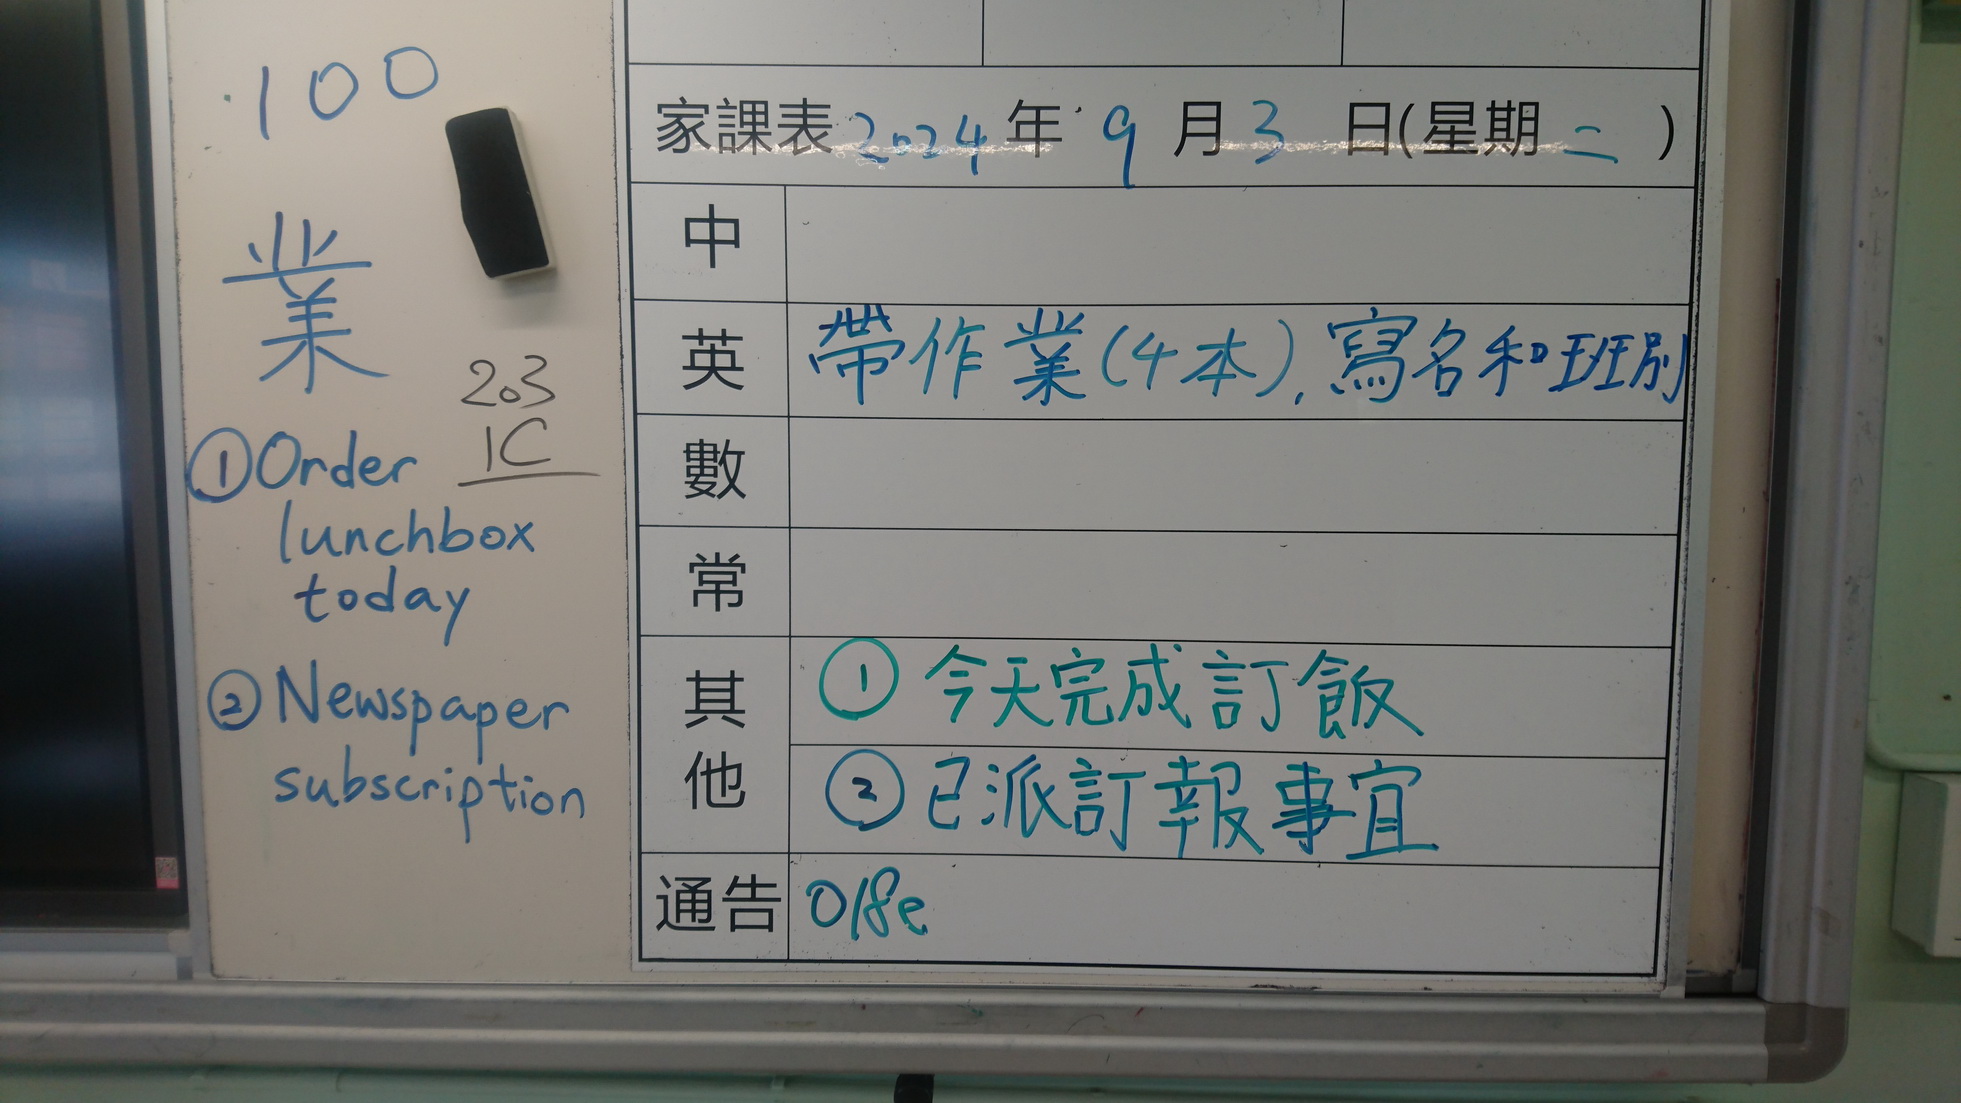 100
業
203
1C
① Order
lunchbox
today
② Newspaper
subscription
家課表 2024 年 9 月 3 日(星期 二 )
中
英 帶作業(4本), 寫名和班別
數
常
其他 ① 今天完成訂飯
② 已派訂報事宜
通告 018e